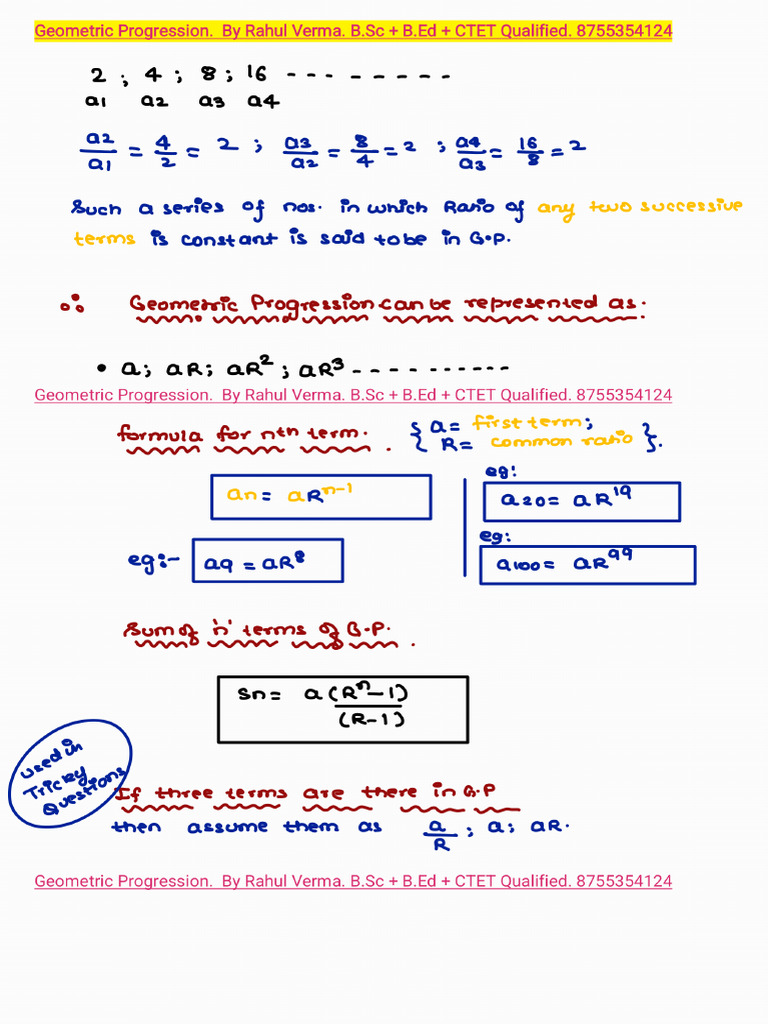 Geometric Progression.  By Rahul Verma. B.Sc + B.Ed + CTET Qualified. 8755354124
2 ; 4 ; 8 ; 16 - - - - - - - - -
a1 a2 a3 a4
a2/a1 = 4/2 = 2 ; a3/a2 = 8/4 = 2 ; a4/a3 = 16/8 = 2
Such a series of nos. in which Ratio of any two successive
terms is constant is said to be in G.P.
∴ Geometric Progression can be represented as.
• a; aR; aR² ; aR³ - - - - - - - - - -
Geometric Progression.  By Rahul Verma. B.Sc + B.Ed + CTET Qualified. 8755354124
formula for nth term. { a = first term;
{ R = common ratio }.
an = aRⁿ⁻¹
eg:
a20 = aR¹⁹
eg:- a9 = aR⁸
eg:
a100 = aR⁹⁹
Sum of 'n' terms of G.P.
Sn = a(Rⁿ-1)/(R-1)
used in
Tricky
Questions
If three terms are there in G.P
then assume them as a/R ; a; aR.
Geometric Progression.  By Rahul Verma. B.Sc + B.Ed + CTET Qualified. 8755354124